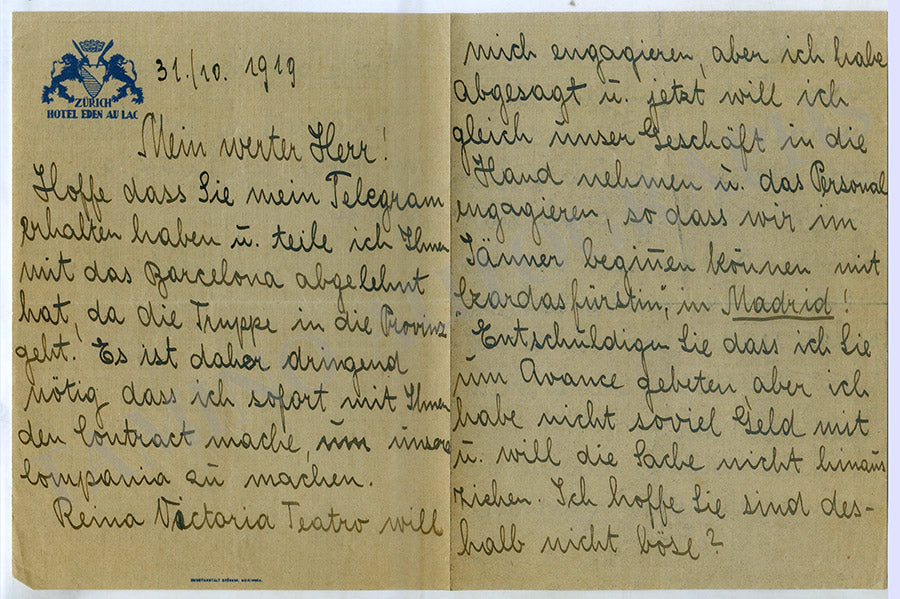 ZÜRICH
HOTEL EDEN AU LAC
31./10. 1919
Mein werter Herr!
Hoffe dass Sie mein Telegram
erhalten haben u. teile ich Ihnen
mit das Barcelona abgelehnt
hat, da die Truppe in die Provinz
geht. Es ist daher dringend
nötig dass ich sofort mit Ihnen
den Contract mache, um unsere
Compania zu machen.
Reina Victoria Teatro will
mich engagieren, aber ich habe
abgesagt u. jetzt will ich
gleich unser Geschäft in die
Hand nehmen u. das Personal
engagieren, so dass wir im
Jänner beginnen können mit
"Czardasfürstin", in Madrid!
Entschuldigen Sie dass ich Sie
um Avance gebeten, aber ich
habe nicht soviel Geld mit
u. will die Sache nicht hinaus
ziehen. Ich hoffe Sie sind des-
halb nicht böse?